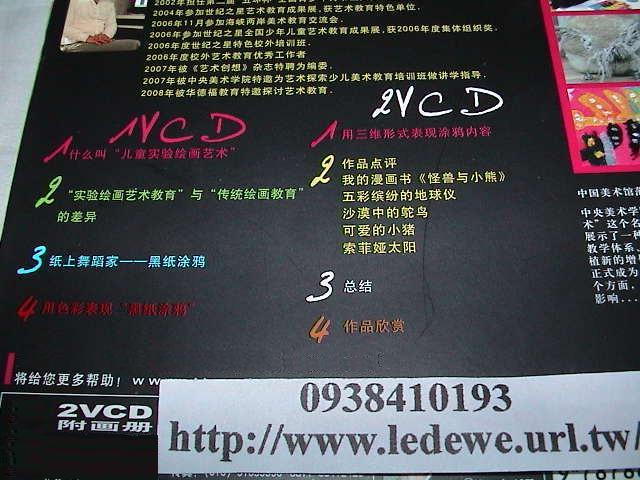 2004年参加世纪之星艺术教育成果展,获艺术教育特色单位.
2006年11月参加海峡两岸美术教育交流会.
2006年参加世纪之星全国少年儿童艺术教育成果展,获2006年度集体组织奖.
2006年度世纪之星特色校外培训班.
2006年度校外艺术教育优秀工作者
2007年被《艺术创想》杂志特聘为编委.
2007年被中央美术学院特邀为艺术探索少儿美术教育培训班做讲学指导.
2008年被华德福教育特邀探讨艺术教育.
1VCD
1 什么叫“儿童实验绘画艺术”
2 “实验绘画艺术教育”与“传统绘画教育”
的差异
3 纸上舞蹈家——黑纸涂鸦
4 用色彩表现“黑纸涂鸦”
2VCD
1 用三维形式表现涂鸦内容
2 作品点评
我的漫画书《怪兽与小熊》
五彩缤纷的地球仪
沙漠中的鸵鸟
可爱的小猪
索菲娅太阳
3 总结
4 作品欣赏
中央美术学
术”这个名
展示了一种
教学体系.
植新的增
正式成为
个方面,
影响...
将给您更多帮助!
2VCD
附画册
0938410193
http://www.ledewe.url.tw/